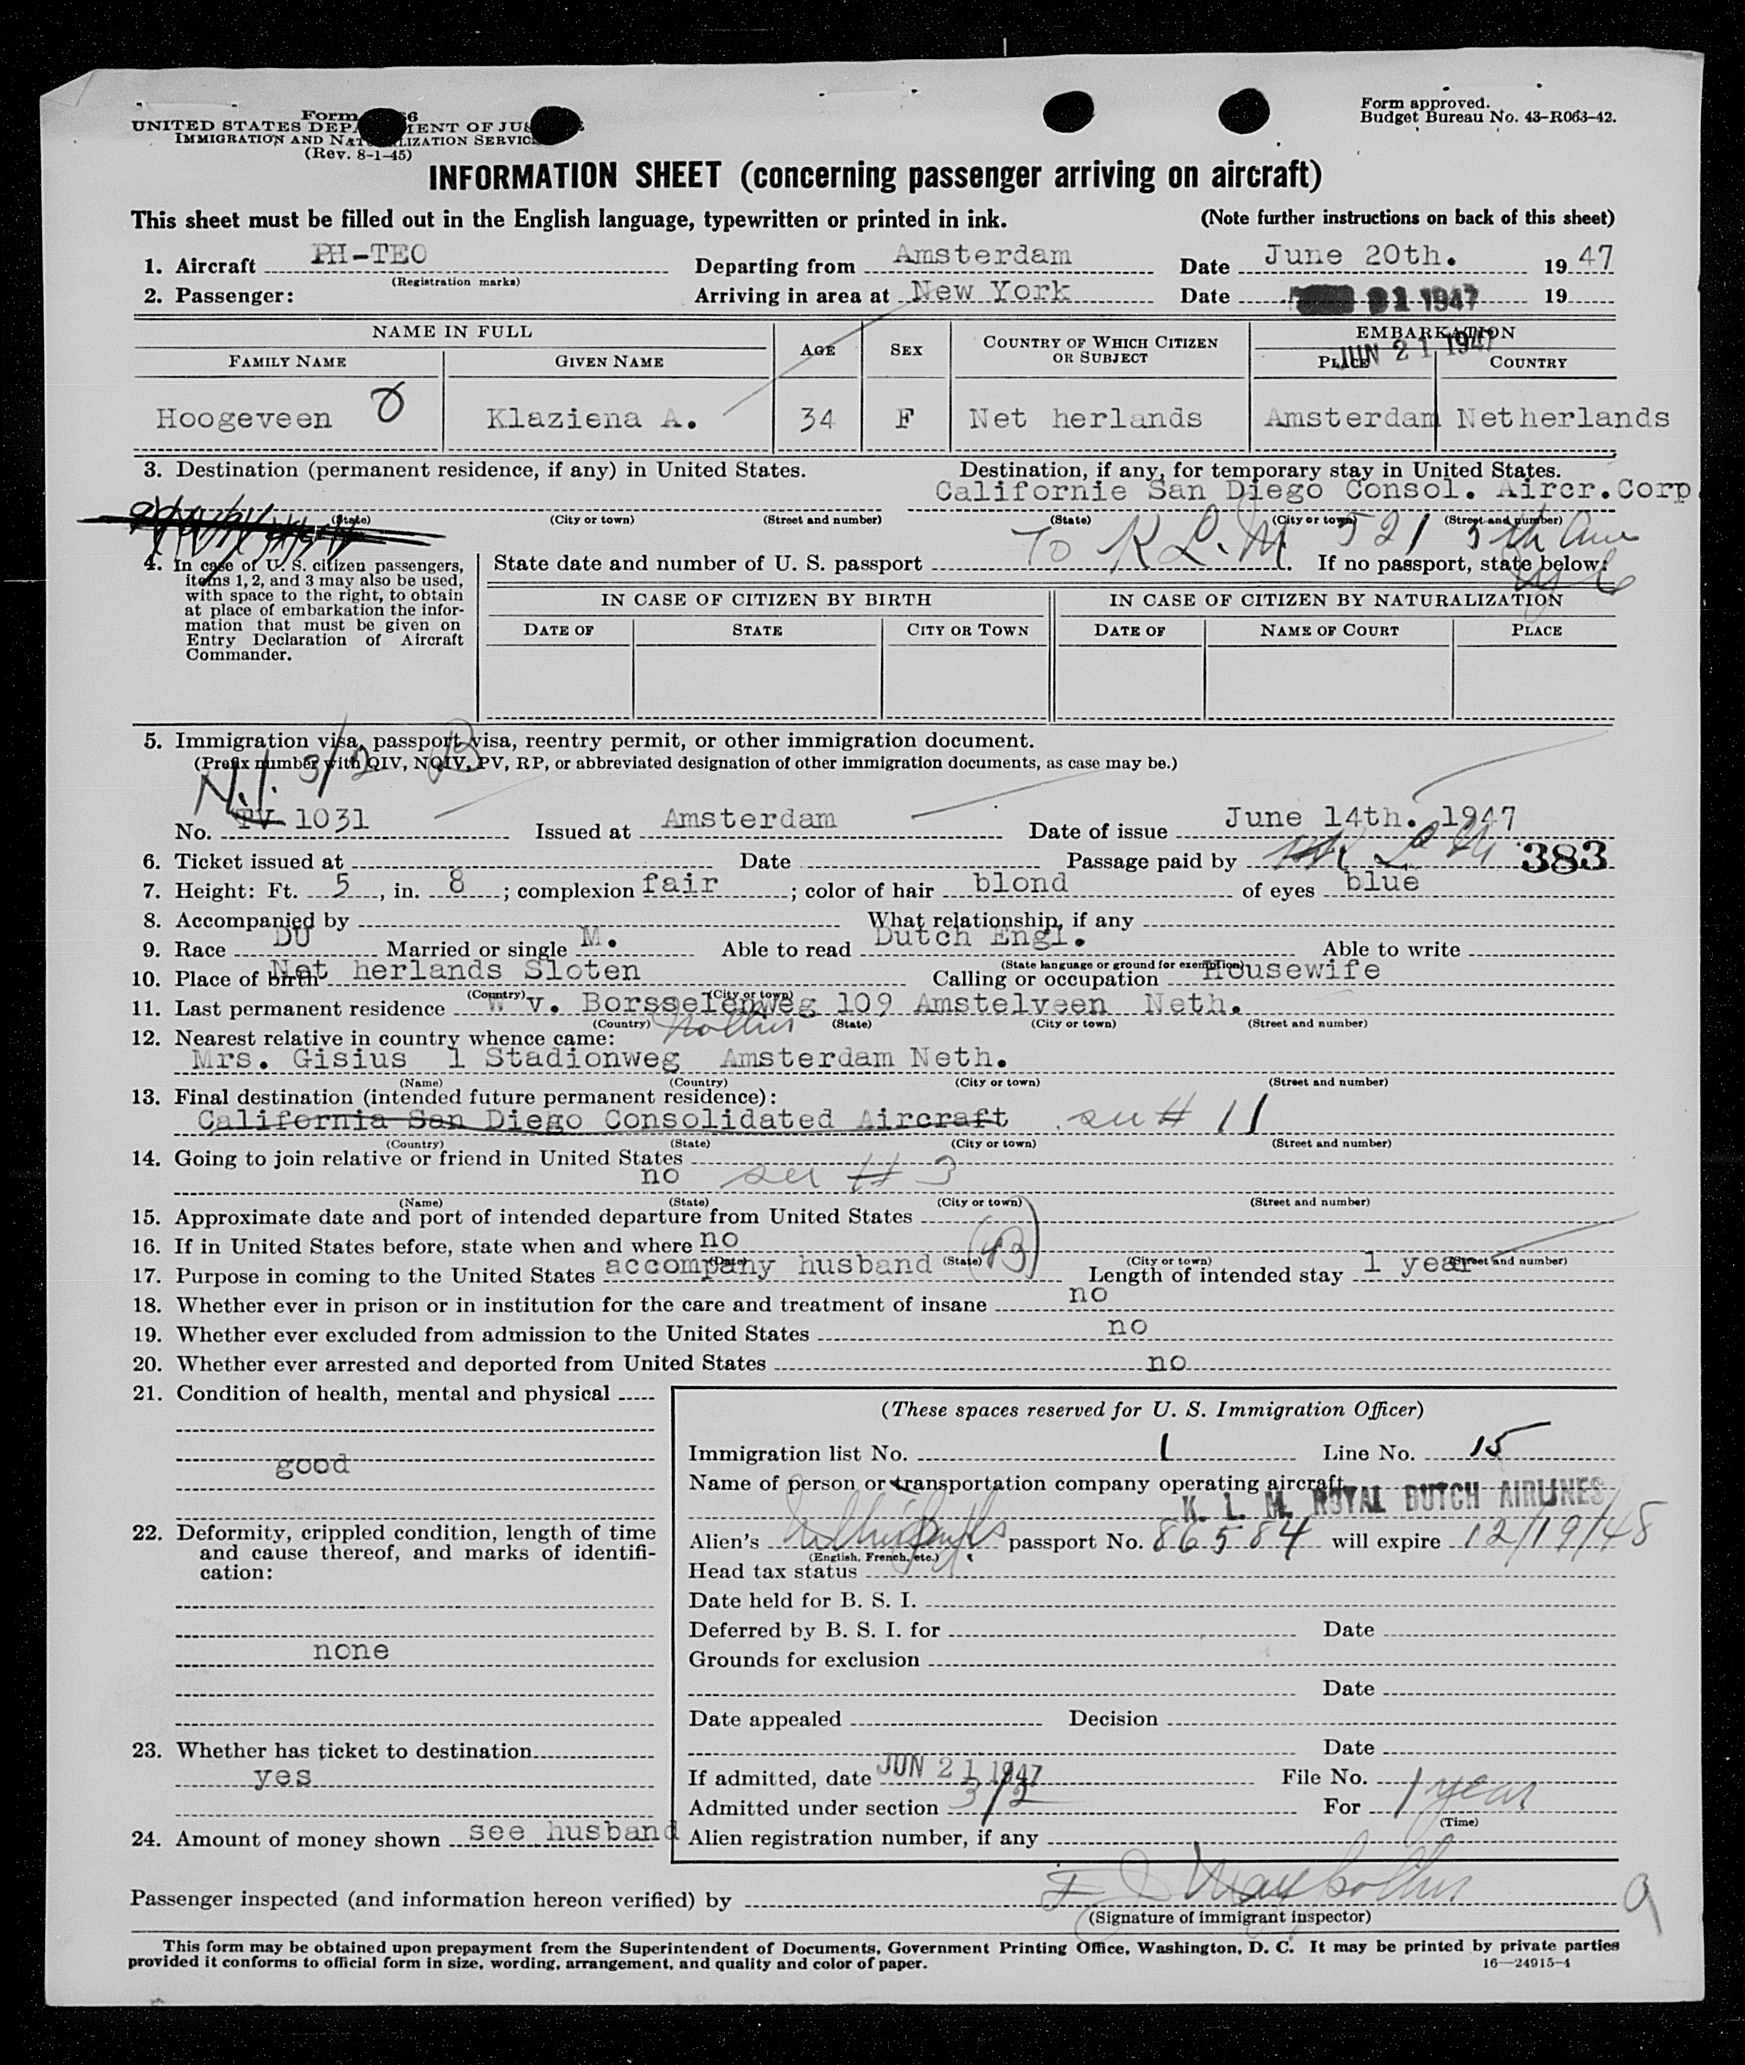 Form 6
UNITED STATES DEPARTMENT OF JUS
IMMIGRATION AND NATURALIZATION SERVIC
(Rev. 8-1-45)
Form approved.
Budget Bureau No. 43-R063-42.
INFORMATION SHEET (concerning passenger arriving on aircraft)
This sheet must be filled out in the English language, typewritten or printed in ink. (Note further instructions on back of this sheet)
1. Aircraft PH-TEO Departing from Amsterdam Date June 20th. 1947
(Registration marks)
2. Passenger: Arriving in area at New York Date 21 1947 19
NAME IN FULL AGE SEX COUNTRY OF WHICH CITIZEN OR SUBJECT EMBARKATION
JUN 21 1947
FAMILY NAME GIVEN NAME PLACE COUNTRY
Hoogeveen Klaziena A. 34 F Net herlands Amsterdam Netherlands
3. Destination (permanent residence, if any) in United States. Destination, if any, for temporary stay in United States.
Californie San Diego Consol. Aircr.Corp
(State) (City or town) (Street and number) (State) (City or town) (Street and number)
To K L. M 521 5th Ave
4. In case of U. S. citizen passengers, items 1, 2, and 3 may also be used, with space to the right, to obtain at place of embarkation the information that must be given on Entry Declaration of Aircraft Commander.
State date and number of U. S. passport If no passport, state below:
IN CASE OF CITIZEN BY BIRTH IN CASE OF CITIZEN BY NATURALIZATION
DATE OF STATE CITY OR TOWN DATE OF NAME OF COURT PLACE
5. Immigration visa, passport visa, reentry permit, or other immigration document.
(Prefix number with QIV, NQIV, PV, RP, or abbreviated designation of other immigration documents, as case may be.)
N.I. 3/2 B
No. PV 1031 Issued at Amsterdam Date of issue June 14th. 1947
6. Ticket issued at Date Passage paid by 383
7. Height: Ft. 5, in. 8; complexion fair; color of hair blond of eyes blue
8. Accompanied by What relationship, if any
9. Race DU Married or single M. Able to read Dutch Engl. Able to write
(State language or ground for exemption)
10. Place of birth Net herlands Sloten Calling or occupation Housewife
(Country) (City or town)
11. Last permanent residence W v. Borsselenweg 109 Amstelveen Neth.
(Country) (State) (City or town) (Street and number)
12. Nearest relative in country whence came:
Mrs. Gisius 1 Stadionweg Amsterdam Neth.
(Name) (Country) (City or town) (Street and number)
13. Final destination (intended future permanent residence):
California San Diego Consolidated Aircraft see # 11
(Country) (State) (City or town) (Street and number)
14. Going to join relative or friend in United States
no see # 3
(Name) (State) (City or town) (Street and number)
15. Approximate date and port of intended departure from United States
16. If in United States before, state when and where no
(Date) (State) (City or town) (Street and number)
17. Purpose in coming to the United States accompany husband Length of intended stay 1 year
18. Whether ever in prison or in institution for the care and treatment of insane no
19. Whether ever excluded from admission to the United States no
20. Whether ever arrested and deported from United States no
21. Condition of health, mental and physical
good
22. Deformity, crippled condition, length of time and cause thereof, and marks of identification:
none
23. Whether has ticket to destination
yes
24. Amount of money shown see husband
(These spaces reserved for U. S. Immigration Officer)
Immigration list No. 1 Line No. 15
Name of person or transportation company operating aircraft
K. L. M. ROYAL DUTCH AIRLINES
Alien's passport No. 86584 will expire 12/19/48
(English, French, etc.)
Head tax status
Date held for B. S. I.
Deferred by B. S. I. for Date
Grounds for exclusion
Date
Date appealed Decision
Date
If admitted, date JUN 21 1947 File No.
Admitted under section 3/2 For 1 year
(Time)
Alien registration number, if any
Passenger inspected (and information hereon verified) by
(Signature of immigrant inspector)
This form may be obtained upon prepayment from the Superintendent of Documents, Government Printing Office, Washington, D. C. It may be printed by private parties
provided it conforms to official form in size, wording, arrangement, and quality and color of paper. 16—24915-1